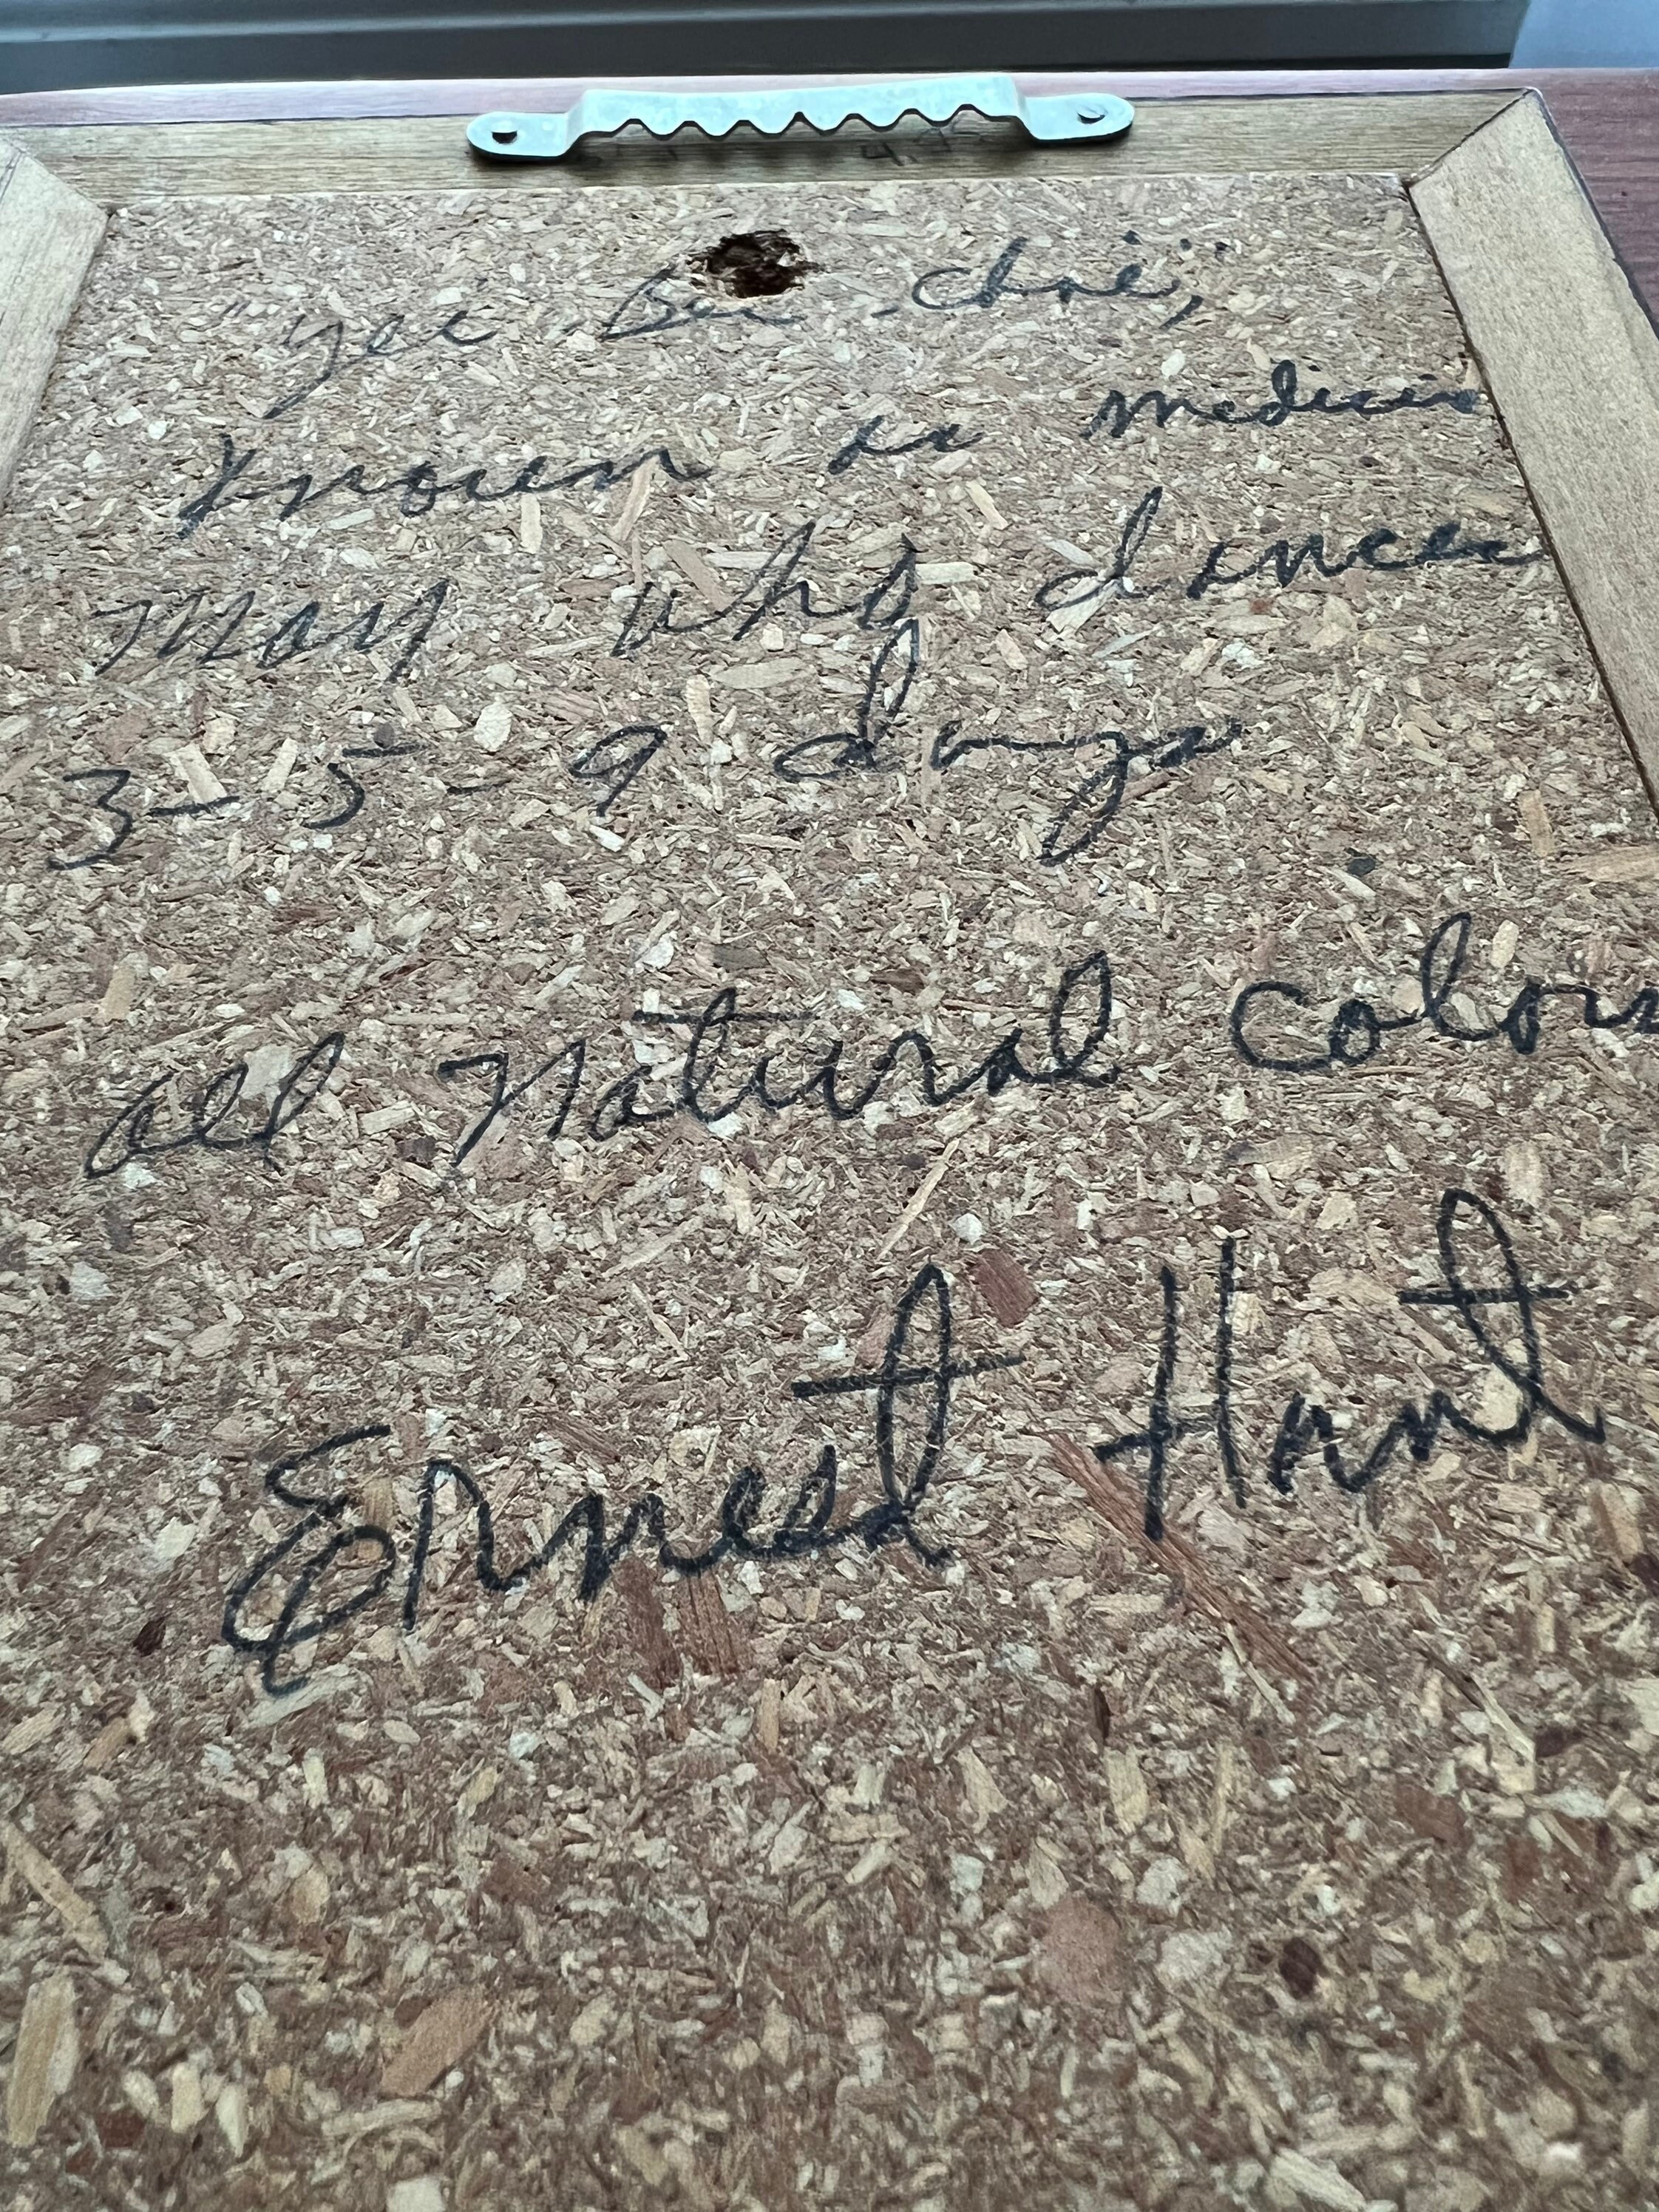 "Yei Bei-Chai",
known as medicin
man who dances
3-5-9 days
all natural colors
Ernest Hant